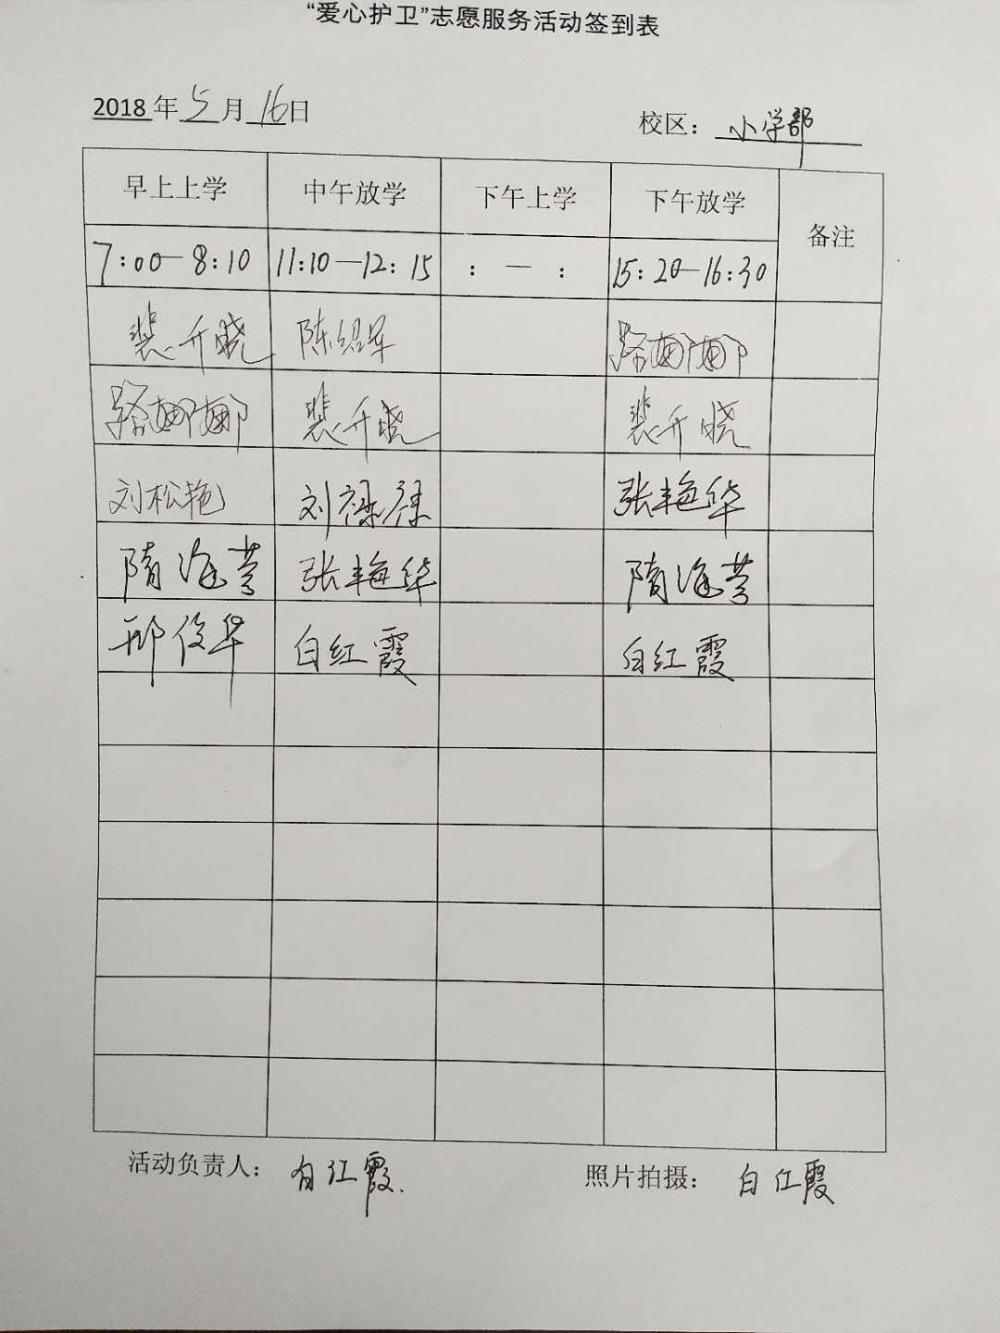 “爱心护卫”志愿服务活动签到表
2018 年 5 月 16 日 校区： 小学部
早上上学 中午放学 下午上学 下午放学 备注
7:00—8:10 11:10—12:15 : — : 15:20—16:30
裴千晓 陈绍军 骆娜娜
骆娜娜 裴千晓 裴千晓
刘松艳 刘禄禄 张艳华
隋海 张艳华 隋海
邢俊华 白红霞 白红霞
活动负责人： 白红霞. 照片拍摄： 白红霞